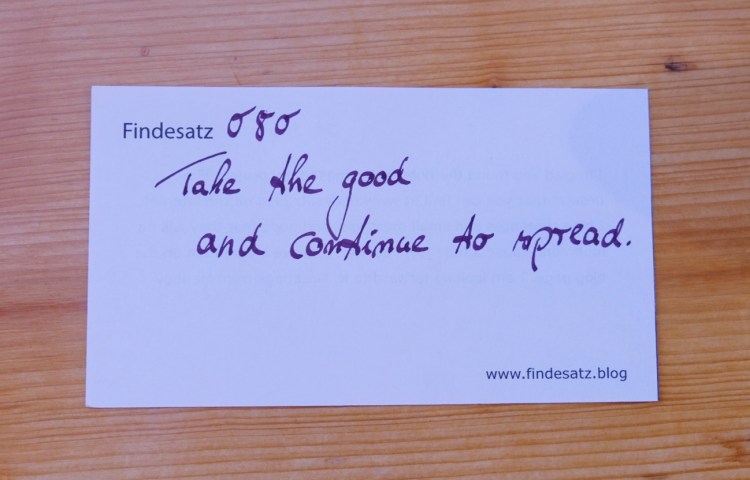 Findesatz 080
Take the good
and continue to spread.
www.findesatz.blog